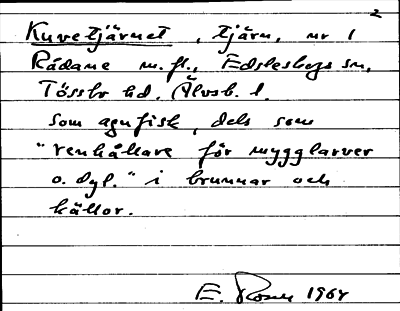 2
Kuvetjärnet, tjärn, nr 1
Rådane m.fl., Edsleskogs sn,
Tössbo hd, Älvsb. l.
som agnfisk, dels som
"renhållare för mygglarver
o. dyl." i brunnar och
källor.
E. Rosen 1964